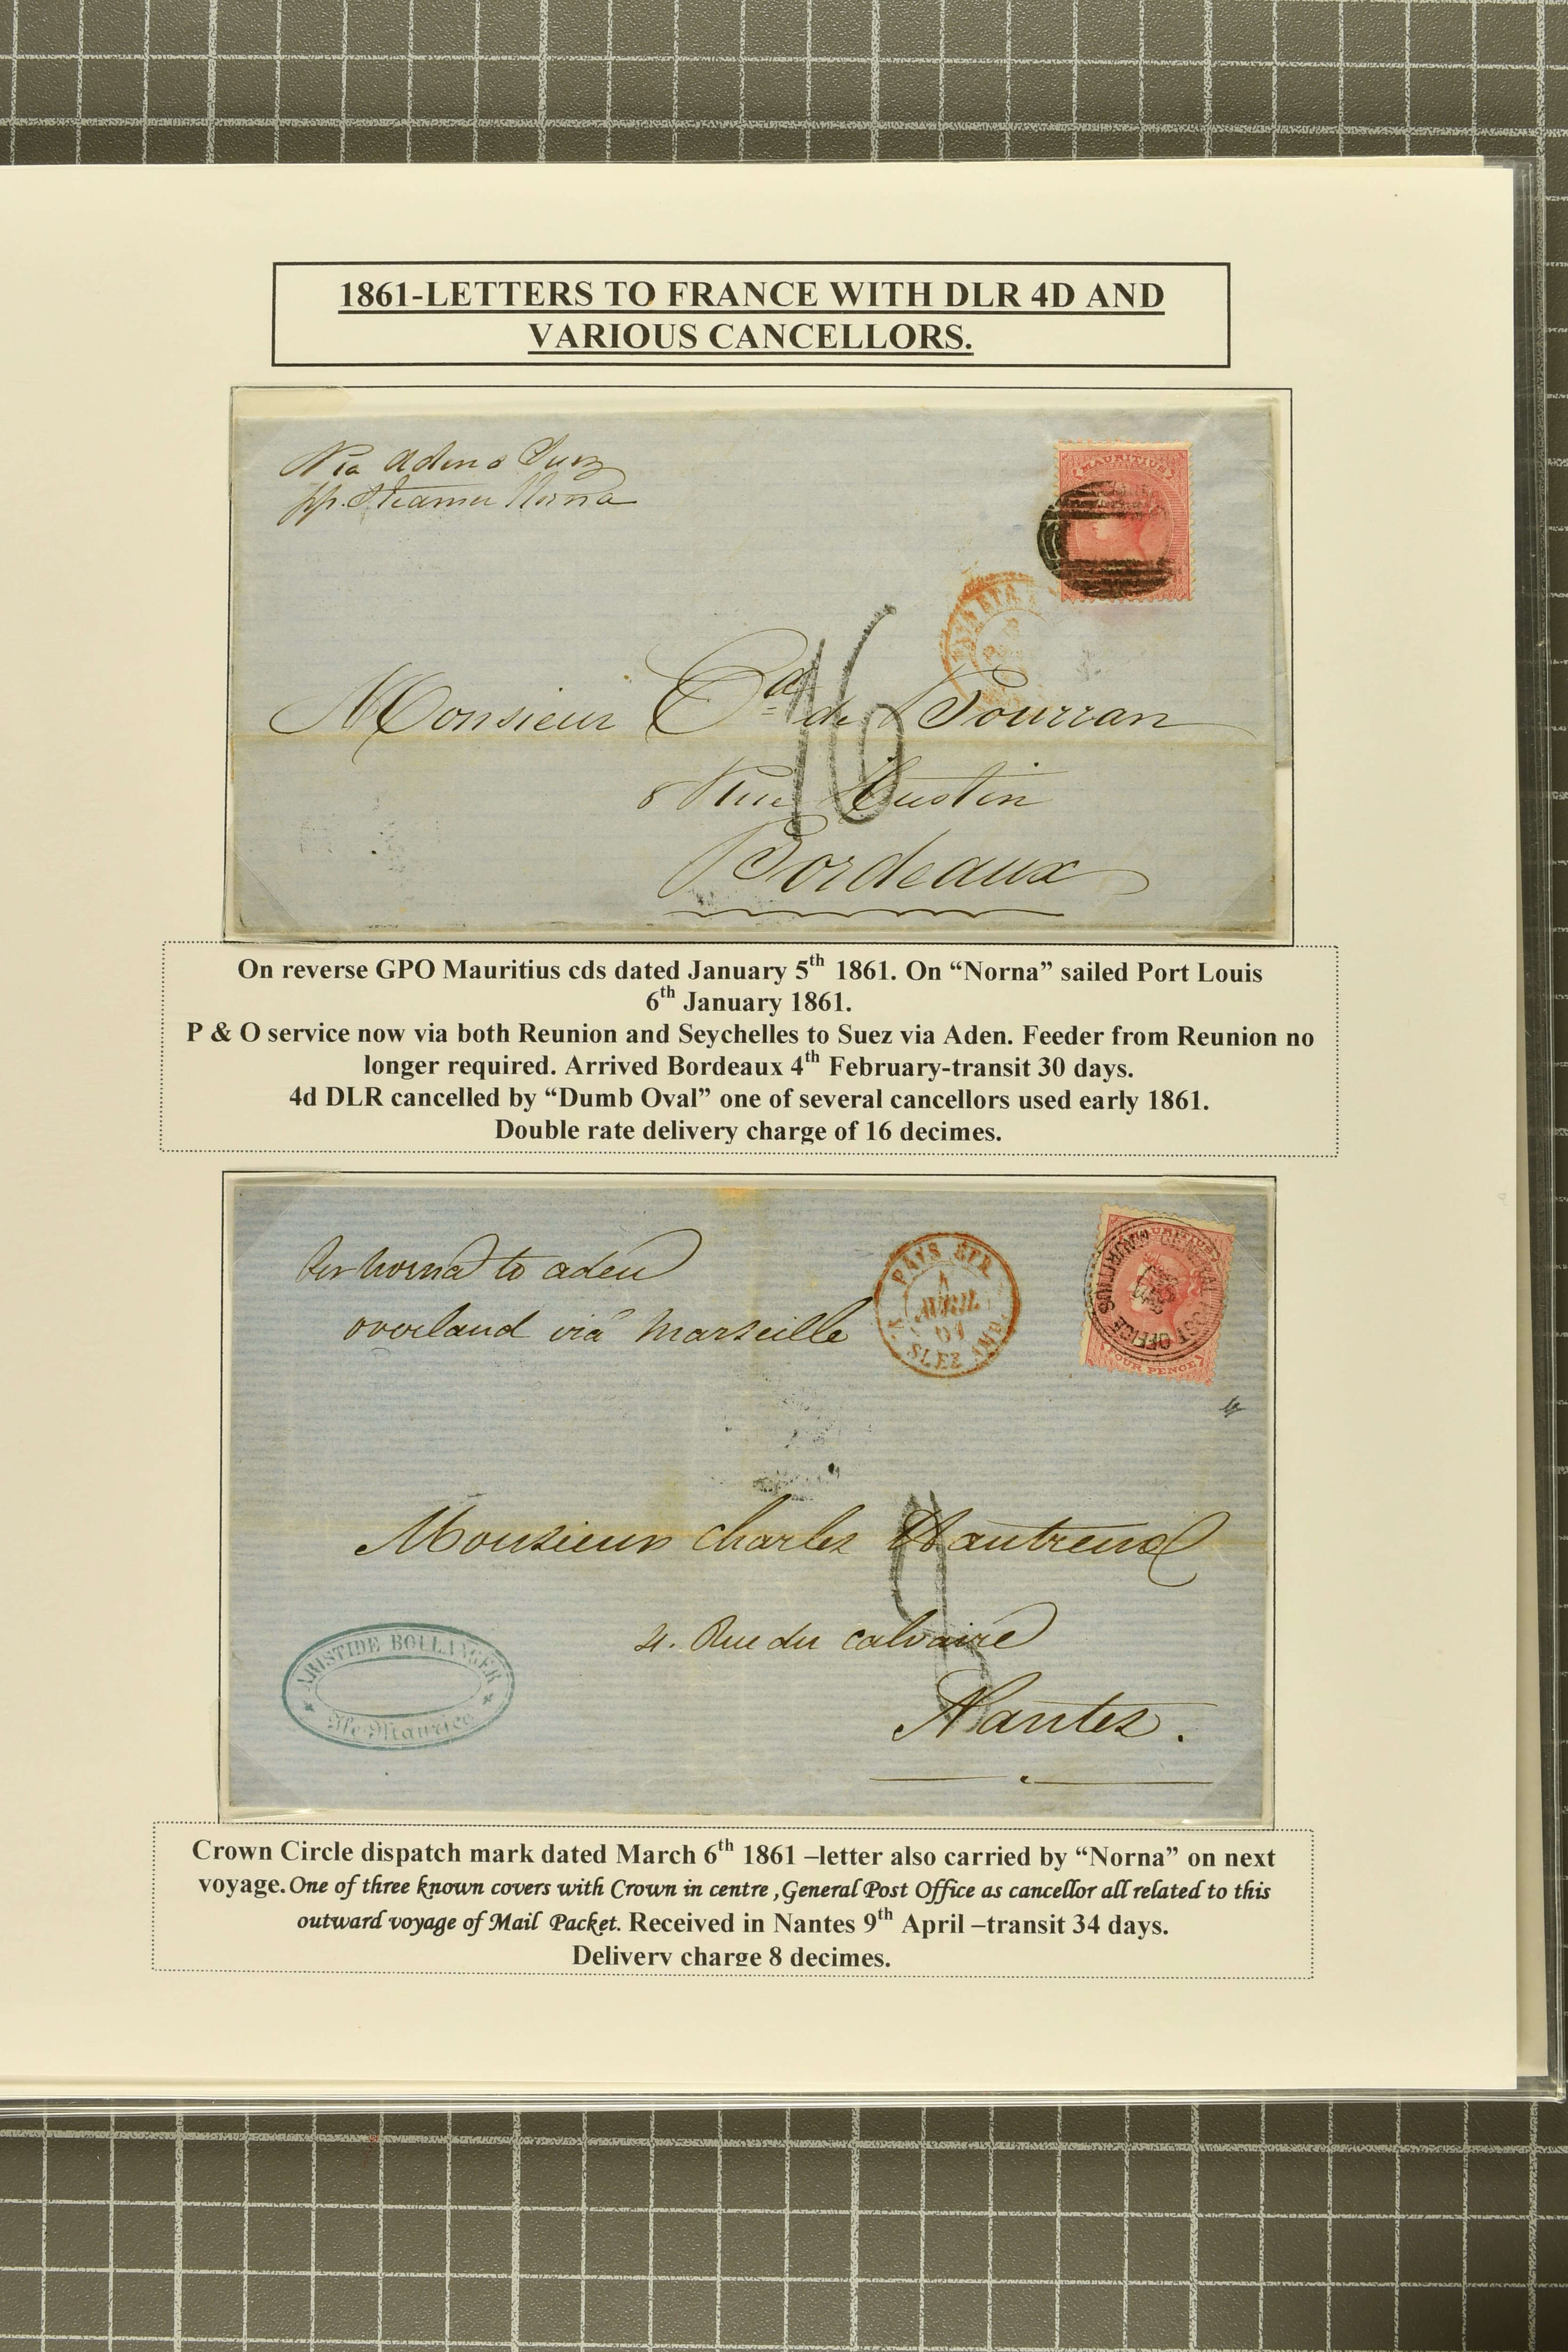 1861-LETTERS TO FRANCE WITH DLR 4D AND
VARIOUS CANCELLORS.
Via Aden & Suez
pp. Steamer Norna
MAURITIUS
PAYS ETR
16
Monsieur Cd de Pourran
8 Rue Hustin
Bordeaux
On reverse GPO Mauritius cds dated January 5th 1861. On “Norna” sailed Port Louis
6th January 1861.
P & O service now via both Reunion and Seychelles to Suez via Aden. Feeder from Reunion no
longer required. Arrived Bordeaux 4th February-transit 30 days.
4d DLR cancelled by “Dumb Oval” one of several cancellors used early 1861.
Double rate delivery charge of 16 decimes.
Per Norna to aden
overland viâ Marseille
PAYS ETR.
AVRIL
61
SUEZ AMB.
MAURITIUS
MAURITIUS GENERAL POST OFFICE
FOUR PENCE
Monsieur Charles
4. Rue du calvaire
Nantes.
ARISTIDE BOULANGER
Ile Maurice
Crown Circle dispatch mark dated March 6th 1861 –letter also carried by “Norna” on next
voyage. One of three known covers with Crown in centre ,General Post Office as cancellor all related to this
outward voyage of Mail Packet. Received in Nantes 9th April –transit 34 days.
Delivery charge 8 decimes.